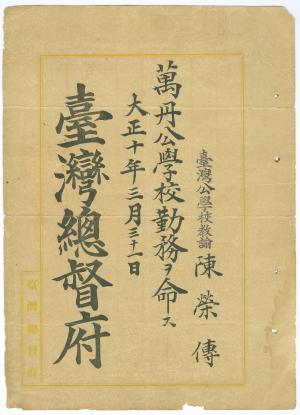 臺灣公學校教諭 陳榮傳
萬丹公學校勤務ヲ命ス
大正十年三月三十一日
臺灣總督府
臺灣總督府